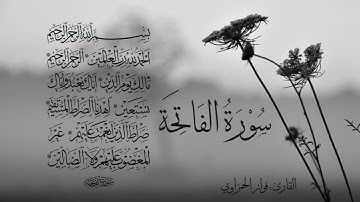 بِسْمِ اللَّهِ الرَّحْمَنِ الرَّحِيمِ
الْحَمْدُ لِلَّهِ رَبِّ الْعَالَمِينَ الرَّحْمَنِ الرَّحِيمِ
مَالِكِ يَوْمِ الدِّينِ إِيَّاكَ نَعْبُدُ وَإِيَّاكَ
نَسْتَعِينُ اهْدِنَا الصِّرَاطَ الْمُسْتَقِيمَ
صِرَاطَ الَّذِينَ أَنْعَمْتَ عَلَيْهِمْ غَيْرِ
الْمَغْضُوبِ عَلَيْهِمْ وَلَا الضَّالِّينَ
سُورَةُ الْفَاتِحَةِ
القارئ. فواز الحزراوي